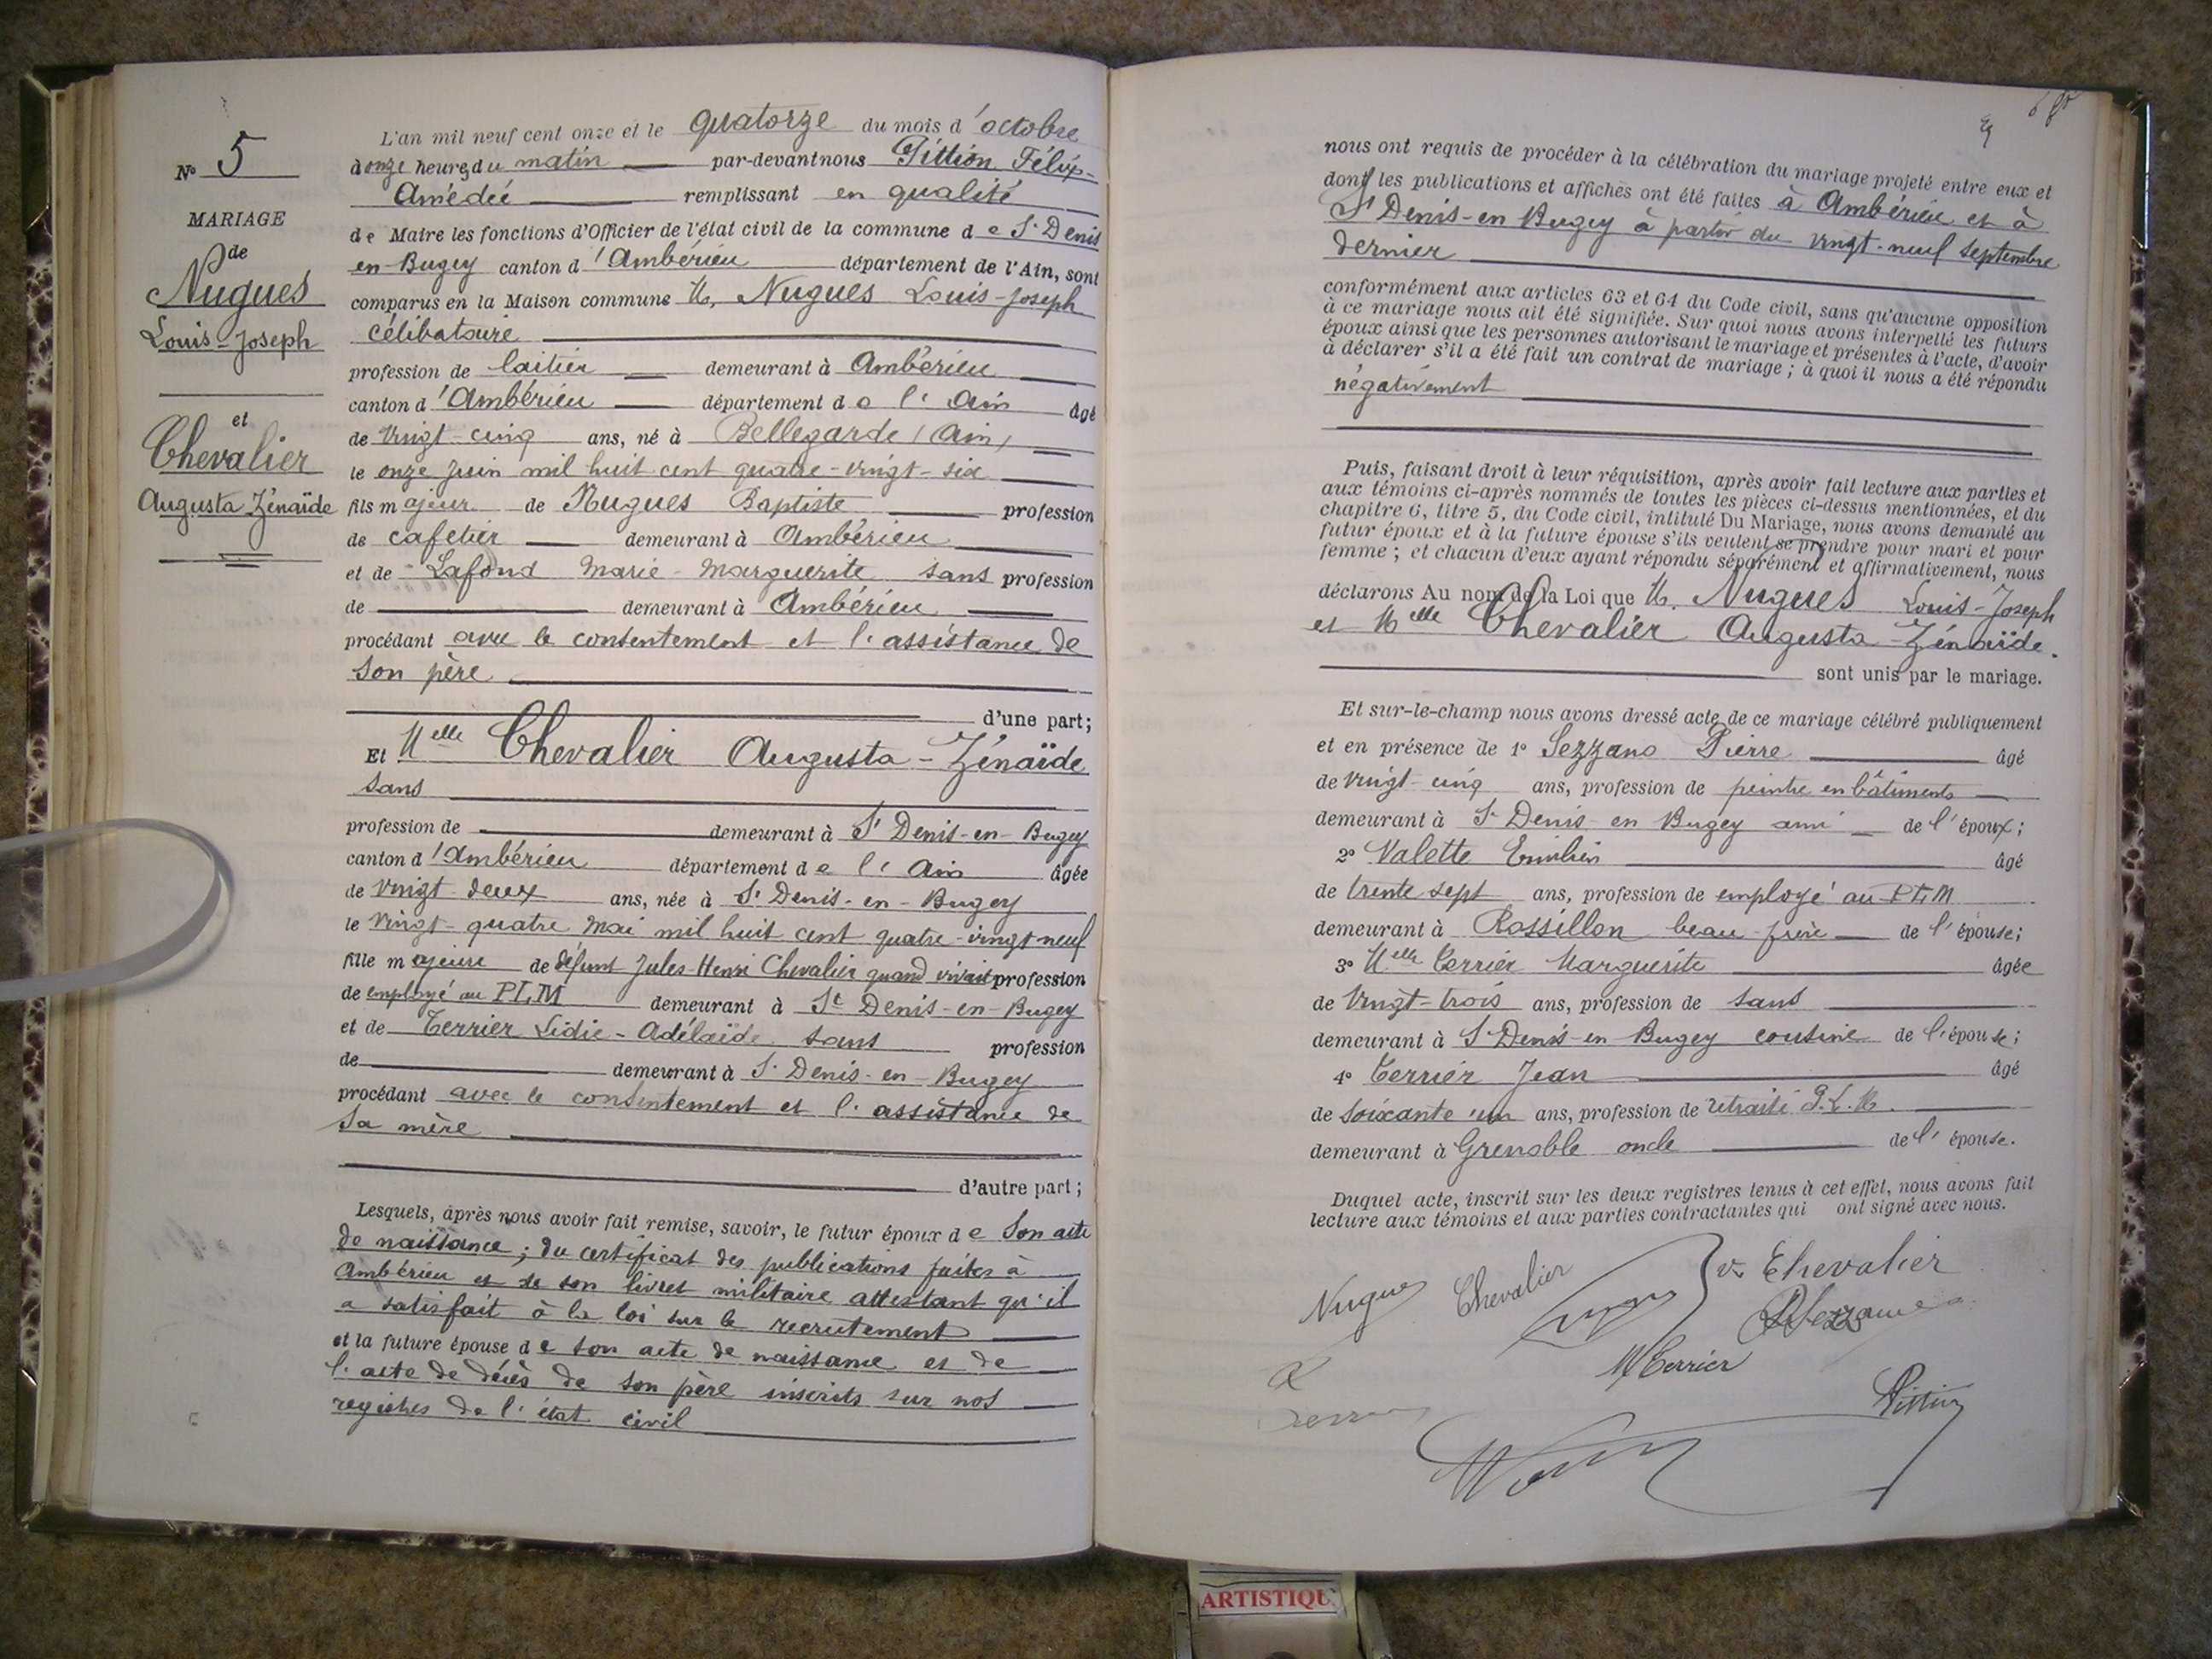 N° 5
MARIAGE
de
Nugues
Louis-Joseph
et
Chevalier
Augusta Zénaïde
L'an mil neuf cent onze et le quatorze du mois d'octobre
à onze heures du matin par-devant nous Pittion Félix-
Amédée remplissant en qualité
de Maire les fonctions d'Officier de l'état civil de la commune de St Denis
en-Bugey canton d'Ambérieu département de l'Ain, sont
comparus en la Maison commune M. Nugues Louis-Joseph
célibataire
profession de laitier demeurant à Ambérieu
canton d'Ambérieu département de l'Ain âgé
de vingt-cinq ans, né à Bellegarde (Ain)
le onze juin mil huit cent quatre-vingt-six
fils majeur de Nugues Baptiste profession
de cafetier demeurant à Ambérieu
et de Lafond Marie-Marguerite sans profession
de demeurant à Ambérieu
procédant avec le consentement et l'assistance de
son père
d'une part;
Et Melle Chevalier Augusta-Zénaïde
sans
profession de demeurant à St Denis-en-Bugey
canton d'Ambérieu département de l'Ain âgée
de vingt-deux ans, née à St Denis-en-Bugey
le vingt-quatre mai mil huit cent quatre-vingt neuf
fille majeure de défunt Jules-Henri Chevalier quand vivait profession
de employé au PLM demeurant à St Denis-en-Bugey
et de Terrier Lidie-Adélaïde sans profession
de demeurant à St Denis-en-Bugey
procédant avec le consentement et l'assistance de
sa mère
d'autre part;
Lesquels, après nous avoir fait remise, savoir, le futur époux de son acte
de naissance; du certificat des publications faites à
Ambérieu et de son livret militaire attestant qu'il
a satisfait à la loi sur le recrutement
et la future épouse de son acte de naissance et de
l'acte de décès de son père inscrits sur nos
registres de l'état civil
nous ont requis de procéder à la célébration du mariage projeté entre eux et
dont les publications et affiches ont été faites à Ambérieu et à
St Denis-en Bugey à partir du vingt-neuf septembre
dernier
conformément aux articles 63 et 64 du Code civil, sans qu'aucune opposition
à ce mariage nous ait été signifiée. Sur quoi nous avons interpellé les futurs
époux ainsi que les personnes autorisant le mariage et présentes à l'acte, d'avoir
à déclarer s'il a été fait un contrat de mariage; à quoi il nous a été répondu
négativement
Puis, faisant droit à leur réquisition, après avoir fait lecture aux parties et
aux témoins ci-après nommés de toutes les pièces ci-dessus mentionnées, et du
chapitre 6, titre 5, du Code civil, intitulé Du Mariage, nous avons demandé au
futur époux et à la future épouse s'ils veulent se prendre pour mari et pour
femme; et chacun d'eux ayant répondu séparément et affirmativement, nous
déclarons Au nom de la Loi que M. Nugues Louis-Joseph
et Melle Chevalier Augusta-Zénaïde.
sont unis par le mariage.
Et sur-le-champ nous avons dressé acte de ce mariage célébré publiquement
et en présence de 1° Sezzano Pierre âgé
de vingt-cinq ans, profession de peintre en bâtiments
demeurant à St Denis en Bugey ami de l'époux;
2° Valette Emilien âgé
de trente sept ans, profession de employé au PLM
demeurant à Rossillon beau-frère de l'épouse;
3° Melle Terrier Marguerite âgée
de vingt-trois ans, profession de sans
demeurant à St Denis-en Bugey cousine de l'épouse;
4° Terrier Jean âgé
de soixante un ans, profession de retraité P.L.M.
demeurant à Grenoble oncle de l'épouse.
Duquel acte, inscrit sur les deux registres tenus à cet effet, nous avons fait
lecture aux témoins et aux parties contractantes qui ont signé avec nous.
Nugues Chevalier Ve Chevalier
M Terrier
Pittion
ARTISTIQU